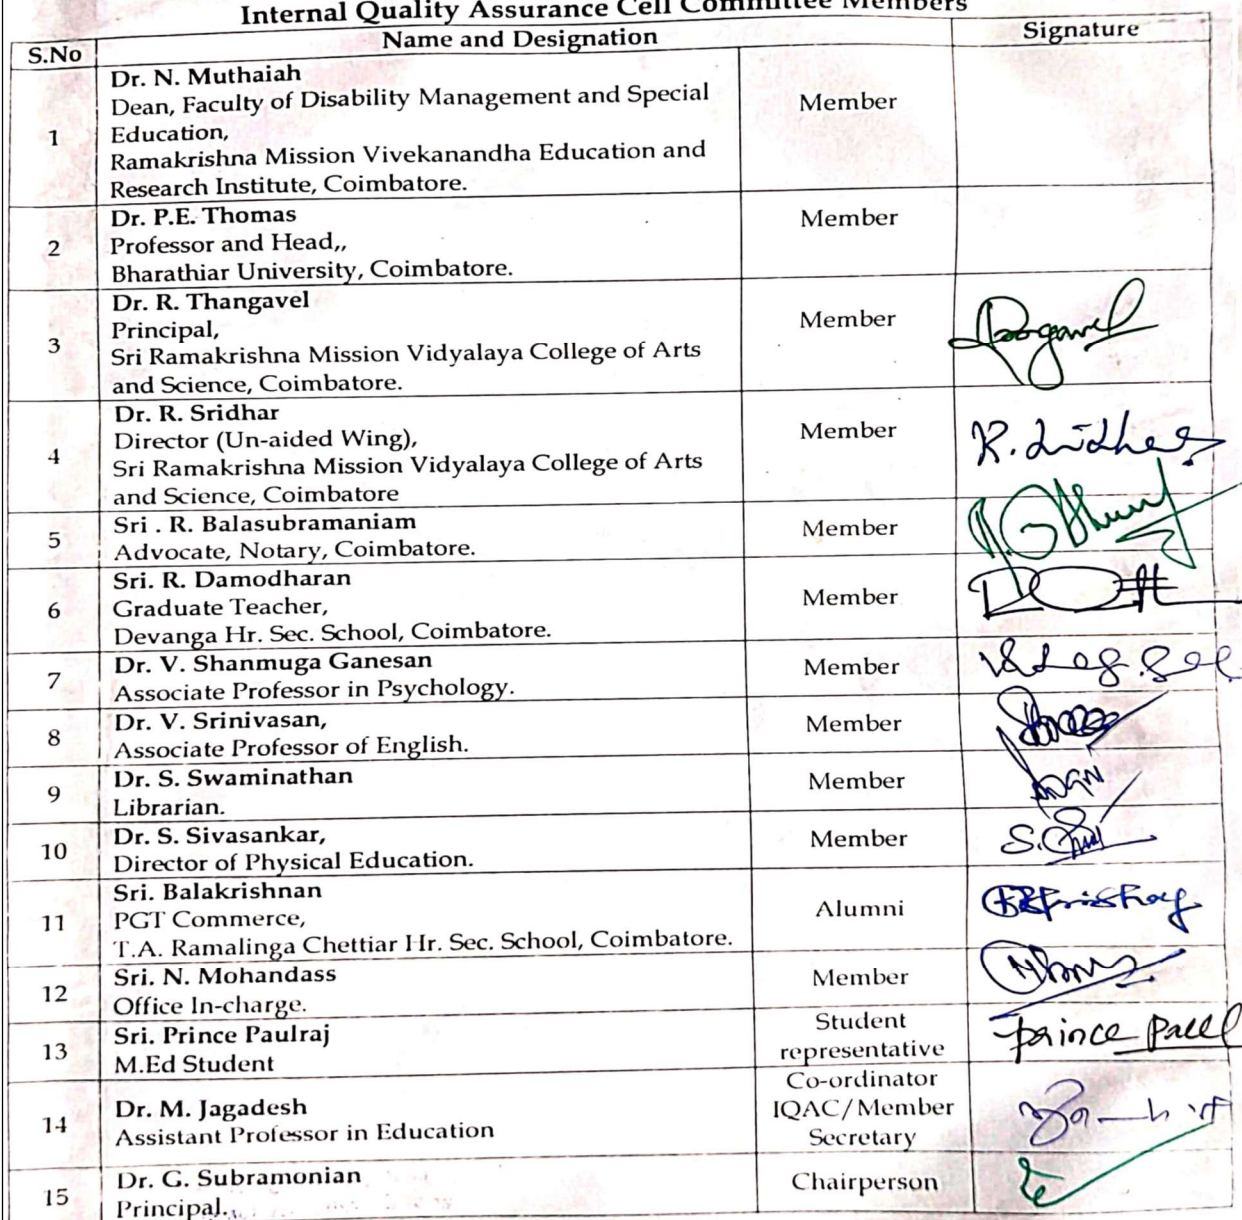 Internal Quality Assurance Cell Committee Members
S.No
Name and Designation
Signature
1
Dr. N. Muthaiah
Dean, Faculty of Disability Management and Special
Education,
Ramakrishna Mission Vivekanandha Education and
Research Institute, Coimbatore.
Member
2
Dr. P.E. Thomas
Professor and Head,,
Bharathiar University, Coimbatore.
Member
3
Dr. R. Thangavel
Principal,
Sri Ramakrishna Mission Vidyalaya College of Arts
and Science, Coimbatore.
Member
4
Dr. R. Sridhar
Director (Un-aided Wing),
Sri Ramakrishna Mission Vidyalaya College of Arts
and Science, Coimbatore
Member
5
Sri . R. Balasubramaniam
Advocate, Notary, Coimbatore.
Member
6
Sri. R. Damodharan
Graduate Teacher,
Devanga Hr. Sec. School, Coimbatore.
Member
7
Dr. V. Shanmuga Ganesan
Associate Professor in Psychology.
Member
8
Dr. V. Srinivasan,
Associate Professor of English.
Member
9
Dr. S. Swaminathan
Librarian.
Member
10
Dr. S. Sivasankar,
Director of Physical Education.
Member
11
Sri. Balakrishnan
PGT Commerce,
T.A. Ramalinga Chettiar Hr. Sec. School, Coimbatore.
Alumni
12
Sri. N. Mohandass
Office In-charge.
Member
13
Sri. Prince Paulraj
M.Ed Student
Student
representative
14
Dr. M. Jagadesh
Assistant Professor in Education
Co-ordinator
IQAC/Member
Secretary
15
Dr. G. Subramonian
Principal.
Chairperson